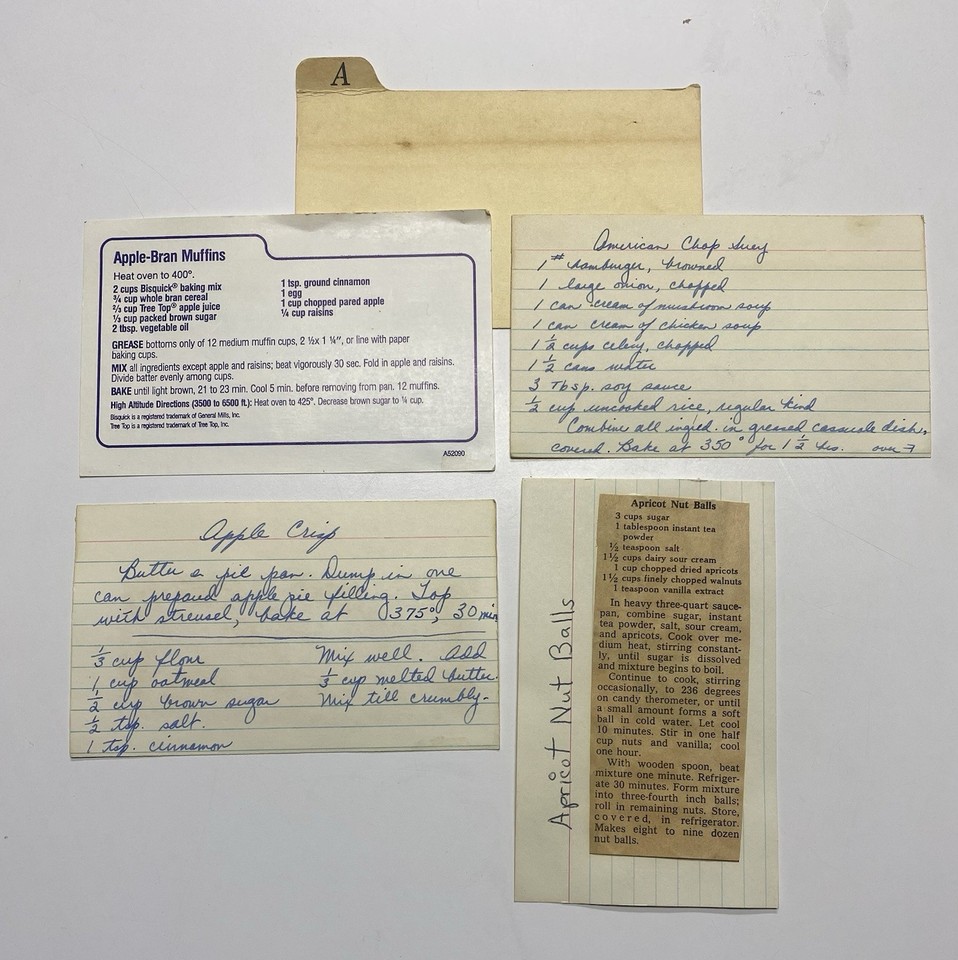 A
Apple-Bran Muffins
Heat oven to 400°.
2 cups Bisquick® baking mix
¾ cup whole bran cereal
⅔ cup Tree Top® apple juice
⅓ cup packed brown sugar
2 tbsp. vegetable oil
1 tsp. ground cinnamon
1 egg
1 cup chopped pared apple
¼ cup raisins
GREASE bottoms only of 12 medium muffin cups, 2 ½x 1 ¼", or line with paper
baking cups.
MIX all ingredients except apple and raisins; beat vigorously 30 sec. Fold in apple and raisins.
Divide batter evenly among cups.
BAKE until light brown, 21 to 23 min. Cool 5 min. before removing from pan. 12 muffins.
High Altitude Directions (3500 to 6500 ft.): Heat oven to 425°. Decrease brown sugar to ¼ cup.
Bisquick is a registered trademark of General Mills, Inc.
Tree Top is a registered trademark of Tree Top, Inc.
A52090
American Chop Suey
1# hamburger, browned
1 large onion, chopped
1 can cream of mushroom soup
1 can cream of chicken soup
1 ½ cups celery, chopped
1 ½ cans water
3 Tbsp. soy sauce
½ cup uncooked rice, regular kind
Combine all ingred. in greased casserole dish,
covered. Bake at 350° for 1 ½ hrs. over
Apple Crisp
Butter a pie pan. Dump in one
can prepared apple pie filling. Top
with streusel, bake at 375°, 30 min
⅓ cup flour
1 cup oatmeal
½ cup brown sugar
½ tsp. salt.
1 tsp. cinnamon
Mix well. Add
⅓ cup melted butter.
Mix till crumbly.
Apricot Nut Balls
Apricot Nut Balls
3 cups sugar
1 tablespoon instant tea
powder
½ teaspoon salt
1½ cups dairy sour cream
1 cup chopped dried apricots
1½ cups finely chopped walnuts
1 teaspoon vanilla extract
In heavy three-quart sauce-
pan, combine sugar, instant
tea powder, salt, sour cream,
and apricots. Cook over me-
dium heat, stirring constant-
ly, until sugar is dissolved
and mixture begins to boil.
Continue to cook, stirring
occasionally, to 236 degrees
on candy therometer, or until
a small amount forms a soft
ball in cold water. Let cool
10 minutes. Stir in one half
cup nuts and vanilla; cool
one hour.
With wooden spoon, beat
mixture one minute. Refriger-
ate 30 minutes. Form mixture
into three-fourth inch balls;
roll in remaining nuts. Store,
covered, in refrigerator.
Makes eight to nine dozen
nut balls.